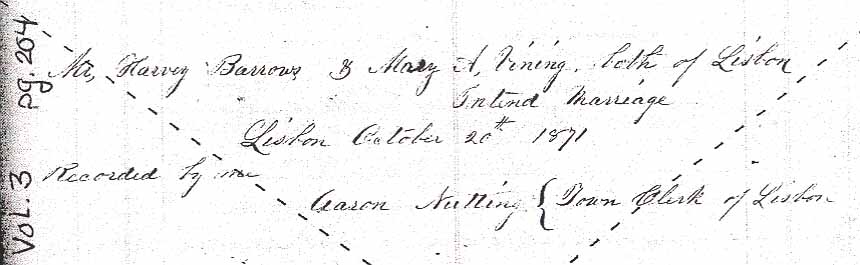 Vol. 3 pg. 204
Mr, Harvey Barrows & Mary A, Vining. both of Lisbon
Intend Marriage
Lisbon October 20th 1871
Recorded by me
Aaron Nutting { Town Clerk of Lisbon